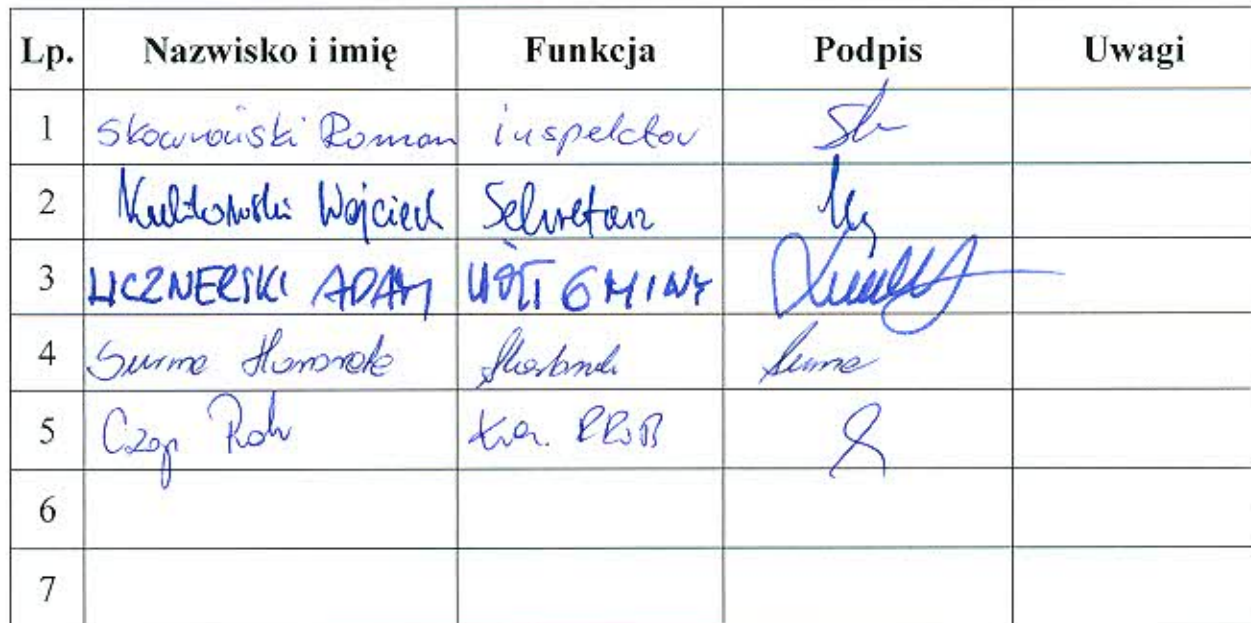 Lp. Nazwisko i imię Funkcja Podpis Uwagi
1 Skowroński Roman inspektor
2 Kulikowski Wojciech Sekretarz
3 LICZNERSKI ADAM WÓJT GMINY
4 Surma Honorata Skarbnik Surma
5 Czap
6
7